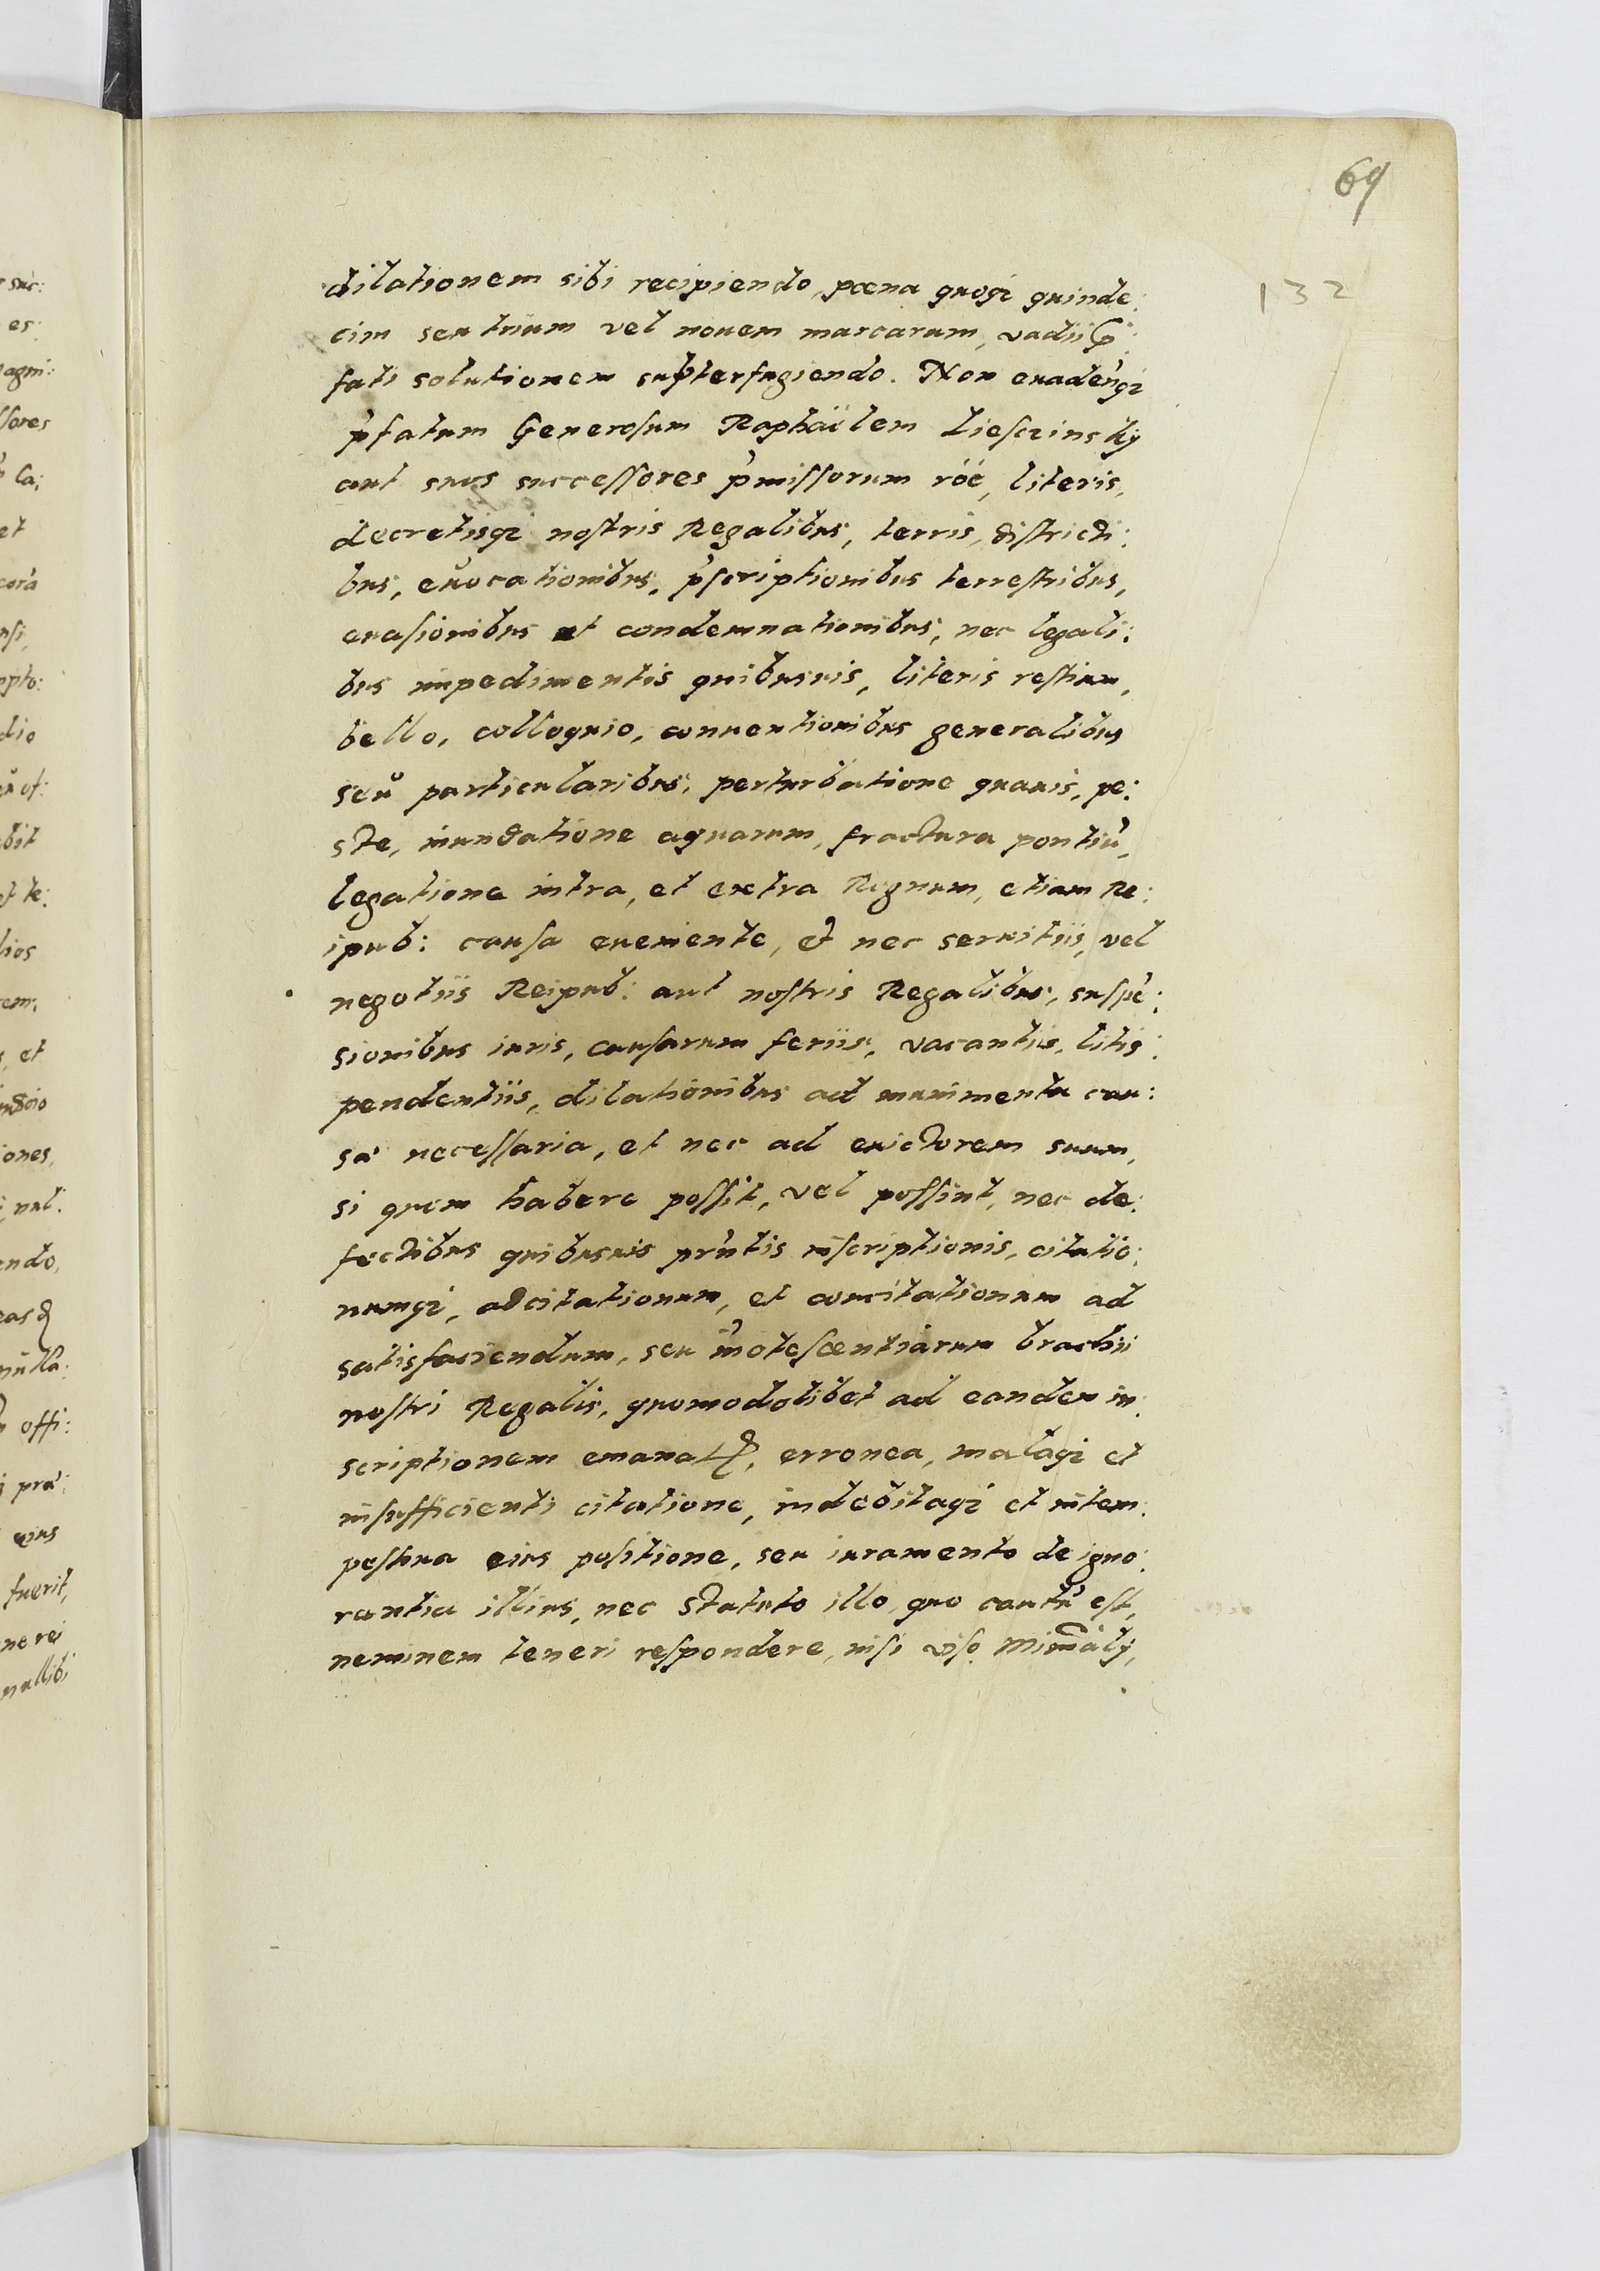 69
132
dilationem sibi recipiendo, poena quoqȝ quinde:
cim seu trium vel nouem marcarum, vadii p̃:
fati solutionem supterfugiendo. Non euadeñqȝ
p̓fatum Generosum Raphaëlem Liesczinsky
aut suos successores p̓missorum rõe, literis,
decretisqȝ nostris Regalibus, terris, districti:
bus, euocationibus, p̓scriptionibus terrestribus,
euasionibus et condemnationibus, nec legali:
bus impedimentis quibusuis, literis restium,
bello, colloquio, conuentionibus generalibus
seu particularibus, perturbatione quauis, pe:
ste, inundatione aquarum, fractura pontiũ,
legatione intra, et extra Regnum, etiam Re:
ipub: causa eueniente, et nec seruitiis, vel
negotiis Reipub: aut nostris Regalibus, suspẽ:
sionibus iuris, causarum feriis, vacantiis, litis
pendentiis, dilationibus ad munimenta cau:
sæ necessaria, et nec ad euictorem suum,
si quem habere possit, vel possint, nec de:
fectibus quibusuis prñtis inscriptionis, citatio:
numqȝ, adcitationum, et concitationum ad
satisfaciendum, seu iñotescentiarum brachii
nostri Regalis, quomodolibet ad eandem in:
scriptionem emanatꝝ, erronea, malaqȝ et
insufficienti citatione, indebitaqȝ et intem:
pestiua eius positione, seu iuramento de igno:
rantia illius, nec statuto illo, quo cautũ est,
neminem teneri respondere, nisi viso